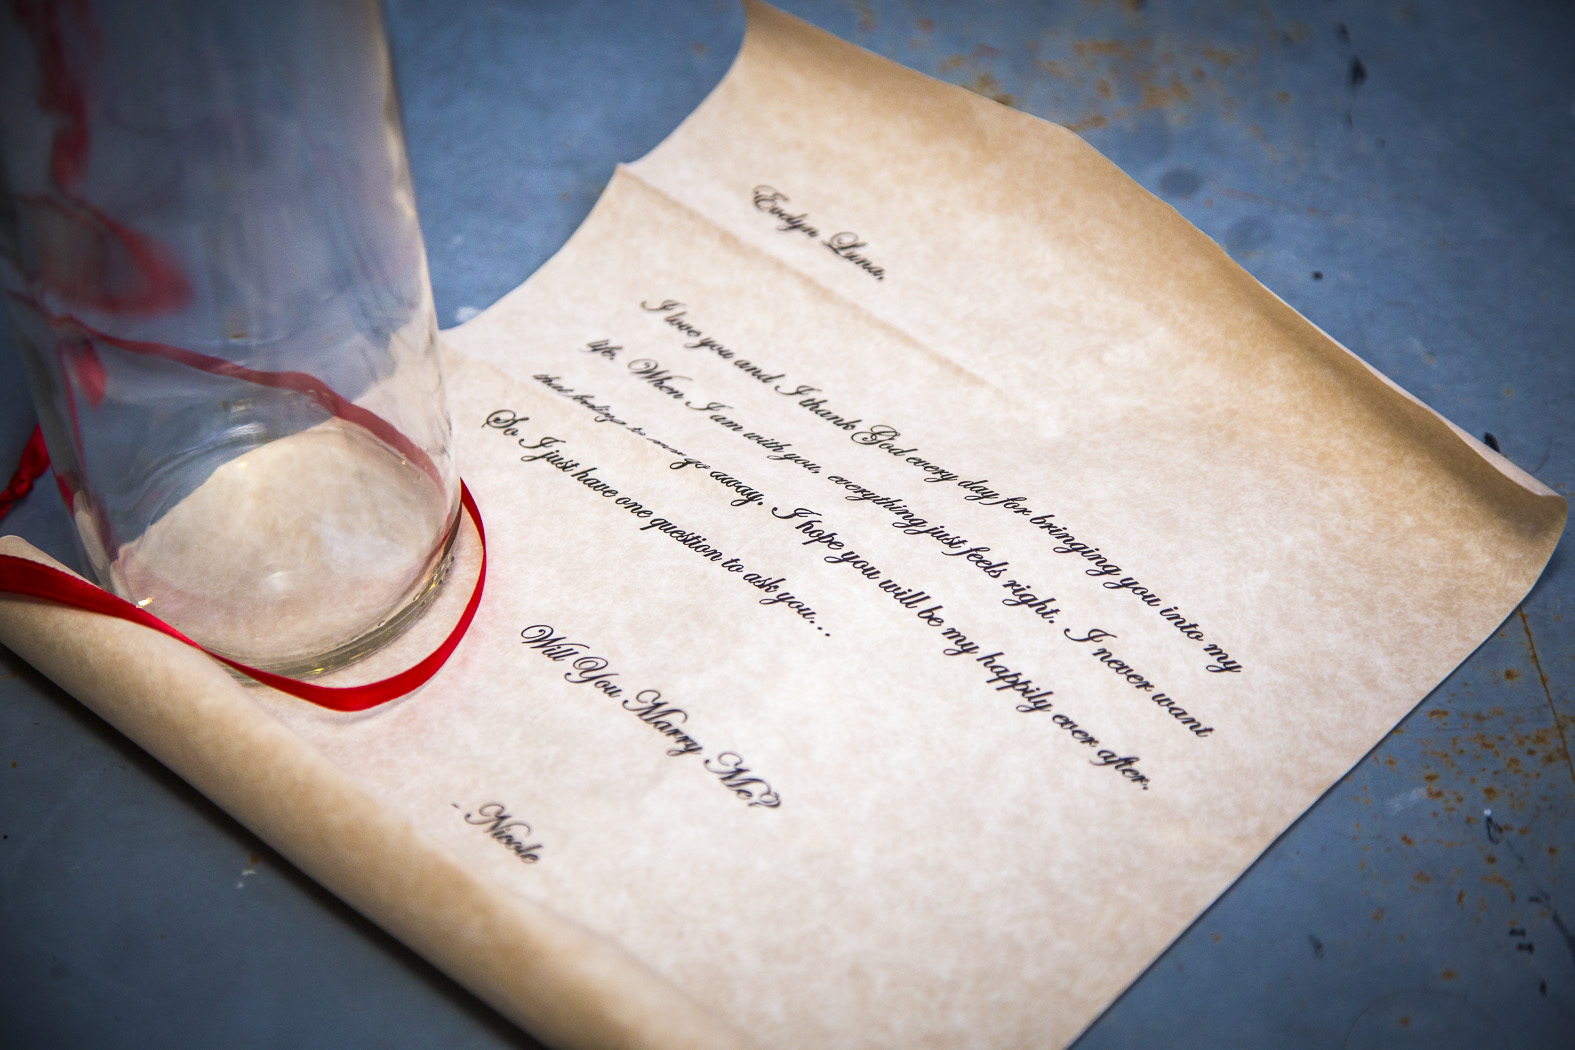 Evelyn Luna,
I love you and I thank God every day for bringing you into my
life. When I am with you, everything just feels right. I never want
that to go away. I hope you will be my happily ever after.
So I just have one question to ask you...
Will You Marry Me?
- Nicole